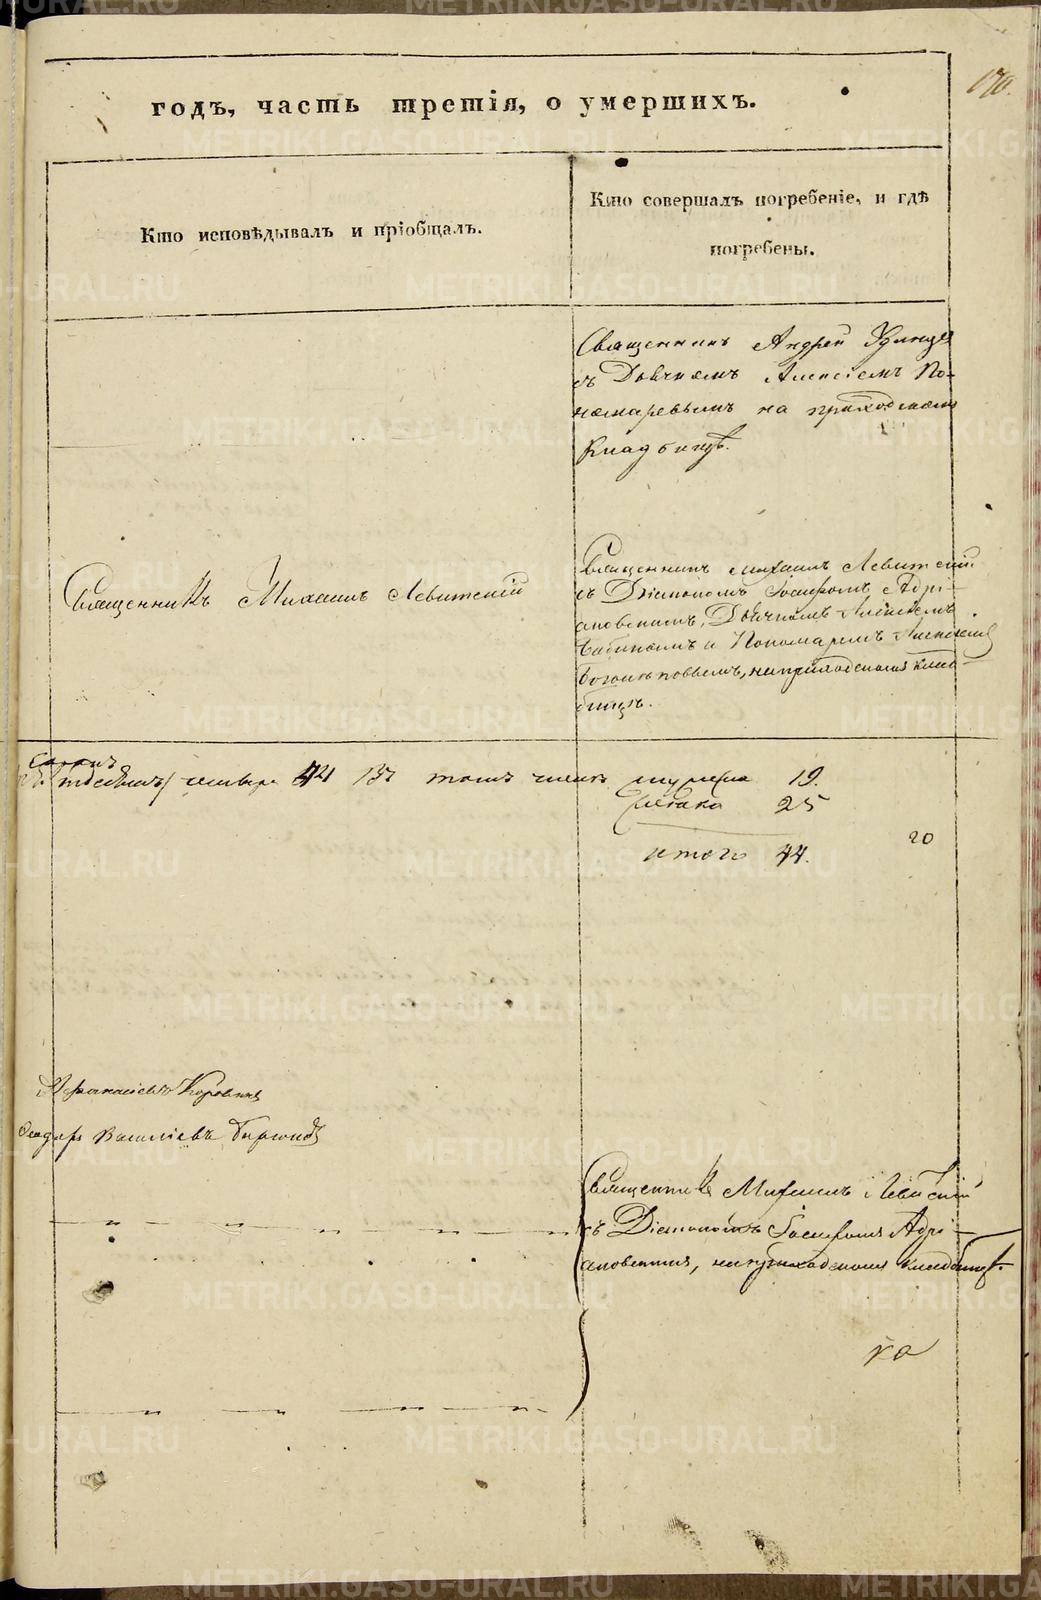 170.
годъ, часть третія, о умершихъ.
Кто исповѣдывалъ и пріобщалъ.
Кто совершалъ погребеніе, и гдѣ
погребены.
Священникъ Андрей Удинцевъ
съ Дьячкомъ Алексіемъ По-
номаревымъ на приходскомъ
Кладбищѣ.
Священникъ Михаилъ Левитскій
Священникъ Михаилъ Левитскій
съ Діакономъ Іосифомъ Адрі-
ановскимъ, Дьячкомъ Алексіемъ
Бабинымъ и Пономаремъ
на приходскомъ клад-
бищѣ.
генваря 44 въ томъ числѣ мужеска 19.
женска 25
итого 44.
20
Афанасіевъ Коровинъ
Ѳеодоръ Василіевъ
Священникъ Михаилъ Левитскій
съ Діакономъ Іосифомъ Адрі-
ановскимъ, на приходскомъ кладбищѣ.
METRIKI.GASO-URAL.RU